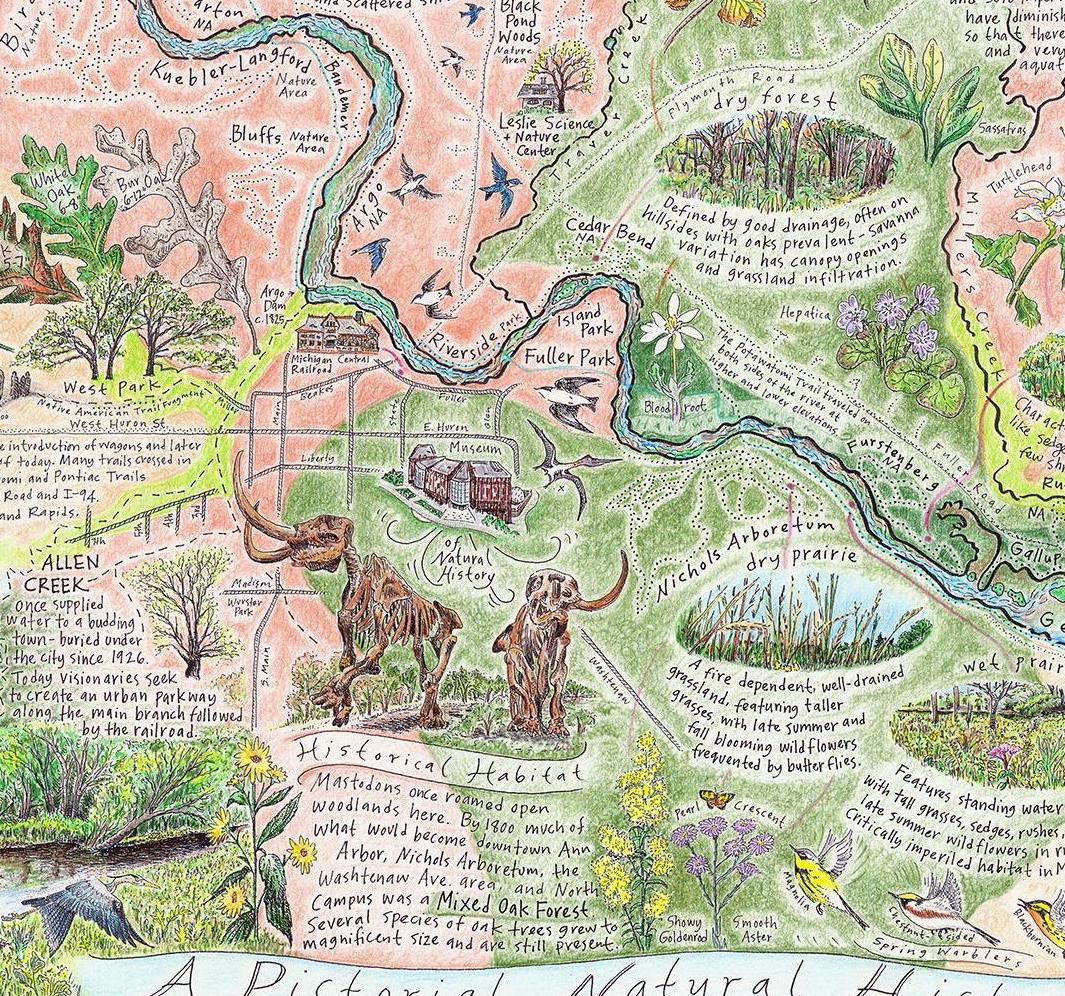 Barton
NA
and scattered
Black
Pond
Woods
Nature
Area
have diminish
so that there
and very
aquat
Kuebler-Langford
Nature
Area
Bandemer
Bluffs Nature
Area
Leslie Science
+ Nature
Center
Traver Creek
Plymouth Road
dry forest
Sassafras
Defined by good drainage, often on
hillsides with oaks prevalent-savanna
variation has canopy openings
and grassland infiltration.
White
Oak
6-8
Bur Oak
Argo
NA
Cedar Bend
NA
Turtlehead
Millers Creek
Hepatica
Argo
Dam
c.1825
Michigan Central
Railroad
Riverside Park
Island
Park
Fuller Park
Blood root
The Potawatomi Trail traveled on
both sides of the river at
higher and lower elevations.
West Park
Native American Trail Fragment
West Huron St.
Miller
Main
Beakes
State
Fuller
Glen
E. Huron
Liberty
e introduction of wagons and later
of today. Many trails crossed in
omi and Pontiac Trails
Road and I-94.
and Rapids.
Museum
of
Natural
History
Furstenberg
NA
Fuller Road
Charact
like sedge
few shr
Ru
NA
Gallup
Nichols Arboretum
dry prairie
A fire dependent, well-drained
grassland, featuring taller
grasses, with late summer and
fall blooming wildflowers
frequented by butterflies.
7th
5th
4th
3rd
ALLEN
CREEK
Once supplied
water to a budding
town-buried under
the city since 1926.
Today visionaries seek
to create an urban parkway
along the main branch followed
by the railroad.
Madison
Wurster
Park
S. Main
Washtenaw
wet prair
Features standing water
with tall grasses, sedges, rushes,
late summer wildflowers in
Critically imperiled habitat in M
Historical Habitat
Mastodons once roamed open
woodlands here. By 1800 much of
what would become downtown Ann
Arbor, Nichols Arboretum, the
Washtenaw Ave. area, and North
Campus was a Mixed Oak Forest
Several species of oak trees grew to
magnificent size and are still present.
Pearl Crescent
Showy
Goldenrod
Smooth
Aster
Magnolia
Chestnut-sided
Blackburnian
Spring Warblers
A Pictorial Natural Hist